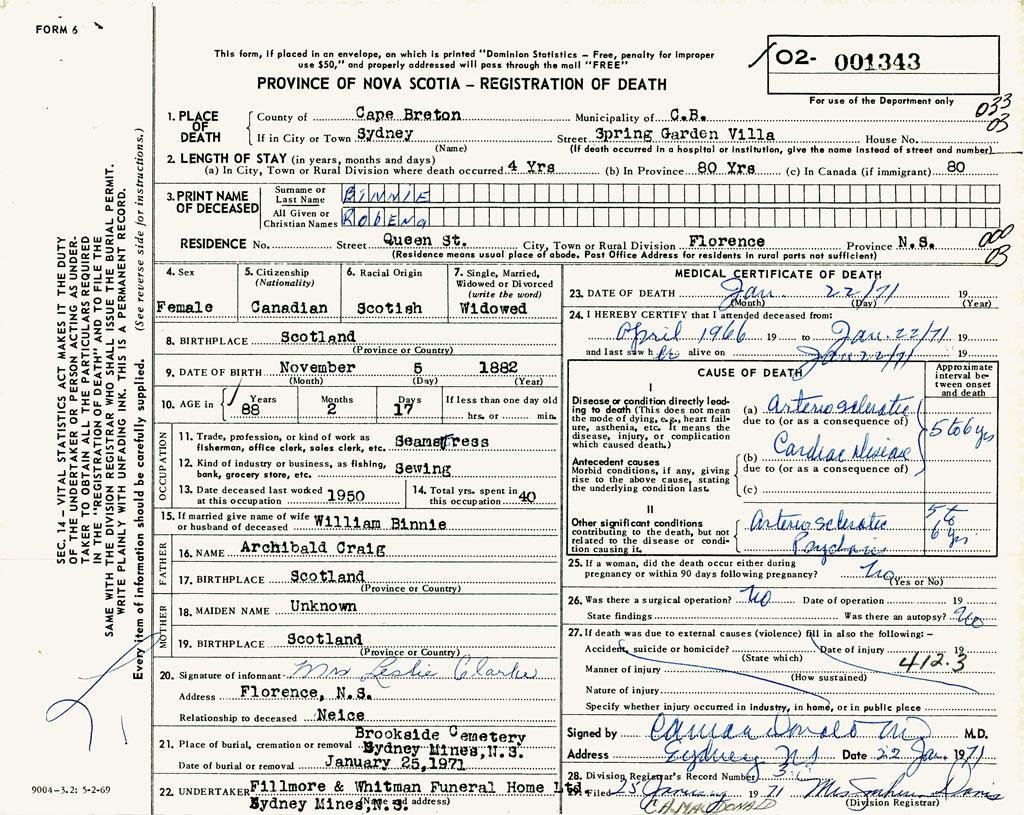 FORM 6
This form, if placed in an envelope, on which is printed "Dominion Statistics – Free, penalty for improper
use $50," and properly addressed will pass through the mail "FREE"
O2- 001343
For use of the Department only
PROVINCE OF NOVA SCOTIA – REGISTRATION OF DEATH
033
03
1. PLACE OF DEATH
County of Cape Breton Municipality of C.B.
If in City or Town Sydney Street Spring Garden Villa House No.
(Name) (If death occurred in a hospital or institution, give the name instead of street and number)
2. LENGTH OF STAY (in years, months and days)
(a) In City, Town or Rural Division where death occurred 4 Yrs (b) In Province 80 Yrs (c) In Canada (if immigrant) 80
3. PRINT NAME OF DECEASED
Surname or Last Name BINNIE
All Given or Christian Names RObENA
RESIDENCE No. Street Queen St. City, Town or Rural Division Florence Province N.S.
(Residence means usual place of abode. Post Office Address for residents in rural parts not sufficient)
000
03
4. Sex
Female
5. Citizenship
(Nationality)
Canadian
6. Racial Origin
Scotish
7. Single, Married,
Widowed or Divorced
(write the word)
Widowed
8. BIRTHPLACE Scotland
(Province or Country)
9. DATE OF BIRTH November 5 1882
(Month) (Day) (Year)
10. AGE in Years 88 Months 2 Days 17 If less than one day old
hrs. or min.
OCCUPATION
11. Trade, profession, or kind of work as
fisherman, office clerk, sales clerk, etc. Seamstress
12. Kind of industry or business, as fishing,
bank, grocery store, etc. Sewing
13. Date deceased last worked
at this occupation 1950
14. Total yrs. spent in
this occupation 40
15. If married give name of wife
or husband of deceased William Binnie
FATHER
16. NAME Archibald Craig
17. BIRTHPLACE Scotland
(Province or Country)
MOTHER
18. MAIDEN NAME Unknown
19. BIRTHPLACE Scotland
(Province or Country)
20. Signature of informant Mrs Leslie Clarke
Address Florence, N.S.
Relationship to deceased Neice
21. Place of burial, cremation or removal Brookside Cemetery
Sydney Mines,N.S.
Date of burial or removal January 25,1971
22. UNDERTAKER Fillmore & Whitman Funeral Home Ltd.
Sydney Mines,N.S
(Name and address)
MEDICAL CERTIFICATE OF DEATH
23. DATE OF DEATH Jan 22/71 19
(Month) (Day) (Year)
24. I HEREBY CERTIFY that I attended deceased from:
April 1966 19 to Jan. 22/71 19
and last saw her alive on Jan 22/71 19
CAUSE OF DEATH
Approximate
interval be-
tween onset
and death
I
Disease or condition directly lead-
ing to death (This does not mean
the mode of dying, e.g., heart fail-
ure, asthenia, etc. It means the
disease, injury, or complication
which caused death.)
(a) Arteriosclerotic
due to (or as a consequence of)
5 to 6 yrs
Antecedent causes
Morbid conditions, if any, giving
rise to the above cause, stating
the underlying condition last.
(b) Cardiac Disease
due to (or as a consequence of)
(c)
II
Other significant conditions
contributing to the death, but not
related to the disease or condi-
tion causing it.
Arteriosclerotic
Psychosis
5 to
6 yrs
25. If a woman, did the death occur either during
pregnancy or within 90 days following pregnancy? No
(Yes or No)
26. Was there a surgical operation? No Date of operation 19
State findings Was there an autopsy? No
27. If death was due to external causes (violence) fill in also the following: –
Accident, suicide or homicide? Date of injury 19
(State which)
412.3
Manner of injury
(How sustained)
Nature of injury
Specify whether injury occurred in industry, in home, or in public place
Signed by M.D.
Address Sydney NS Date 22 Jan. 1971
28. Division Registrar's Record Number
29. Filed 25 January 1971
(Division Registrar)
C.H. MACDONALD
SEC. 14 – VITAL STATISTICS ACT MAKES IT THE DUTY
OF THE UNDERTAKER OR PERSON ACTING AS UNDER-
TAKER TO OBTAIN ALL THE PARTICULARS REQUIRED
IN THE "REGISTRATION OF DEATH" AND TO FILE THE
SAME WITH THE DIVISION REGISTRAR WHO SHALL ISSUE THE BURIAL PERMIT.
WRITE PLAINLY WITH UNFADING INK. THIS IS A PERMANENT RECORD.
Every item of information should be carefully supplied. (See reverse side for instructions.)
9004-3.2: 5-2-69